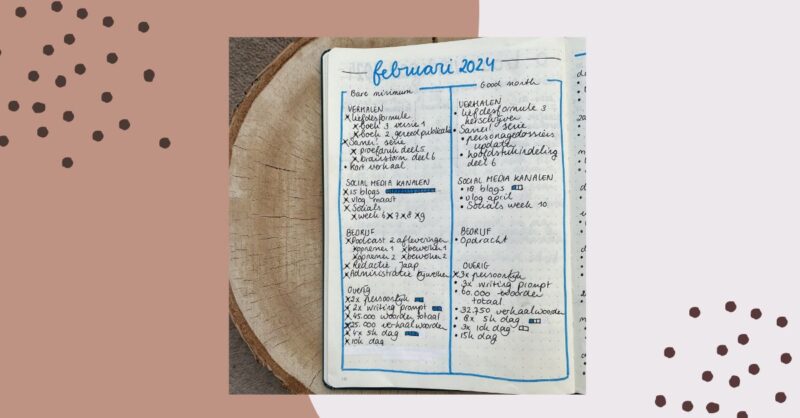 februari 2024
Bare minimum
VERHALEN
x liefdesformule
x boek 3 versie 1
x boek 2 gereed publicatie
x Samen! serie
x proefdruk deel 5
x brainstorm deel 6
• Kort verhaal
SOCIAL MEDIA KANALEN
x 15 blogs
x vlog maart
x Socials
x week 6 x 7 x 8 x 9
BEDRIJF
x Podcast 2 afleveringen
x opnemen 1 x bewerken 1
x opnemen 2 x bewerken 2
x Redactie Jaap
x Administratie bijwerken
OVERIG
x 2x persoonlijk
x 2x writing prompt
x 45.000 woorden totaal
x 25.000 verhaalwoorden
x 4x 5k dag
x 10k dag
Good month
VERHALEN
• liefdesformule 3
herschrijven
• Samen! serie
• personagedossiers
updaten
• hoofdstukindeling
deel 6
SOCIAL MEDIA KANALEN
• 18 blogs
• vlog april
• Socials week 10
BEDRIJF
• Opdracht
OVERIG
x 3x persoonlijk
• 3x writing prompt
• 60.000 woorden
totaal
• 32.750 verhaalwoorden
• 8x 5k dag
• 3x 10k dag
• 15k dag